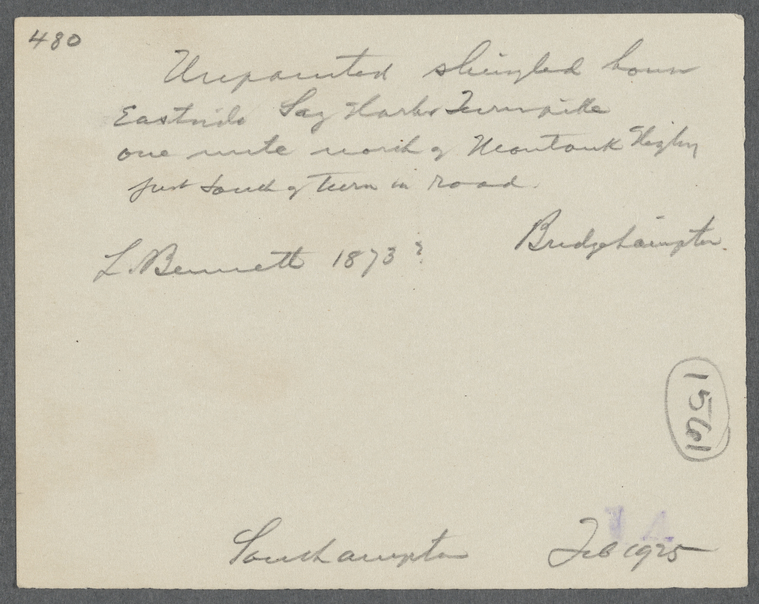 480
Unpainted shingled house
Eastside Sag Harbor Turnpike
one mile north of Montauk Highy
just South of turn in road.
Bridgehampton.
L. Bennett 1873?
1561
14
Southampton Feb 1925